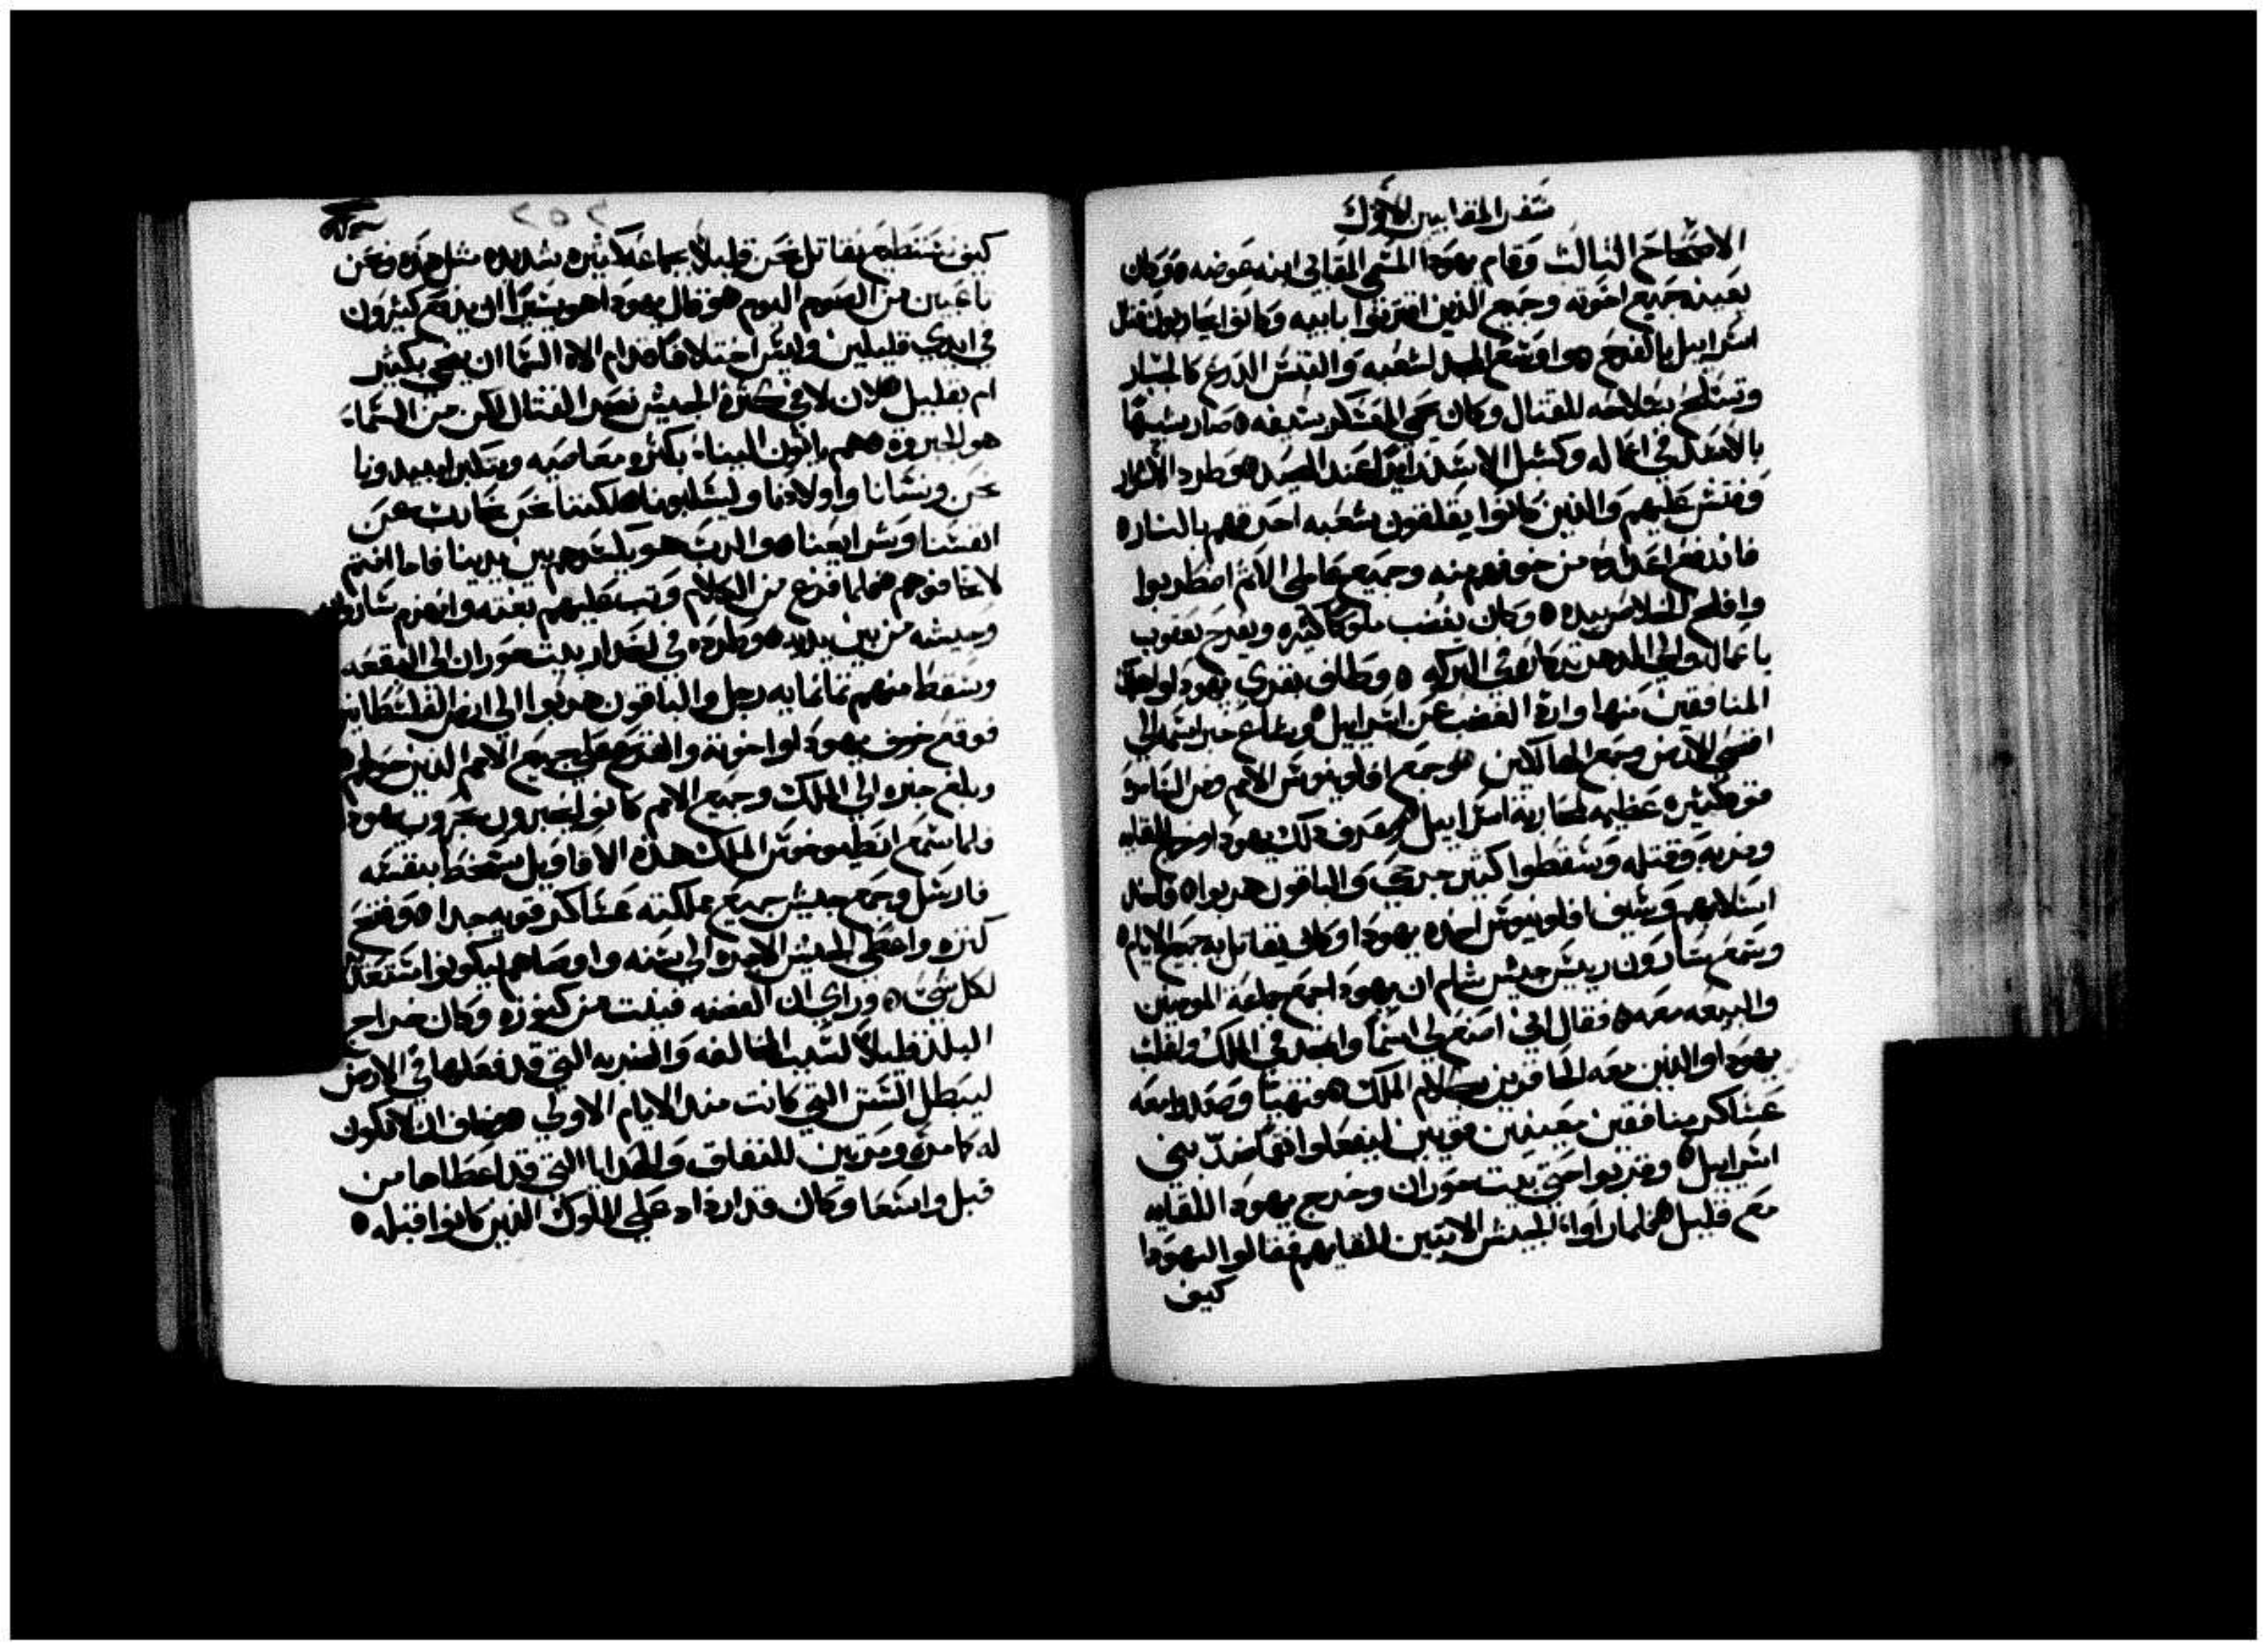 سفر المقابيين الاول
الاصحاح الثالث وقام يهودا المسمى المقابى ابنه عوضه ه وكان
يعينه جميع اخوته وجميع الذين اقترنوا بابيه وكانوا يحاربون قتال
اسراييل بالفرح ه واوسع المجد لشعبه والتبس الدرع كالجبار
وتسلح بسلاحه للقتال وكان يحمى المعسكر بسيفه ه صار شبيها
بالاسد فى اعماله وكشبل الاسد عند الصيد ه وطرد الاشرار
وفتش عليهم والذين كانوا يقلقون شعبه احرقهم بالنار ه
فاندفع اعداوه من خوفهم منه وجميع عاملى الاثم اضطربوا
وافلح الخلاص بيده ه وكان يغضب ملوكا كثيره ويفرح يعقوب
باعماله والى الدهر تذكاره فى البركه ه وطاف بقرى يهودا واهلك
المنافقين منها وارد الغضب عن اسراييل ه وشاع خبر اسمه الى
اقصى الارض وجمع الهالكين ه وجمع افلونيوس الامم ومن السامره
قوه كثيره عظيمه لمحاربة اسراييل ه فعرف ذلك يهودا وخرج للقايه
وضربه وقتله وسقطوا كثير جرحى والباقون هربوا ه فاخذ
اسلابهم وسيف افلونيوس اخذه يهودا وكان يقاتل به جميع الايام ه
وسمع سارون ريس جيش شام ان يهودا جمع جماعة المومنين
والبيعه معه ه فقال انى اصنع لى اسما واتمجد فى الملك واغلب
يهودا والذين معه الحاقرين بكلام الملك ه فتهيا وصعدوا معه
عساكر منافقين معينين قويين ليفعلوا نقما ضد بنى
اسراييل ه وقربوا حتى بيت حوران وخرج يهودا للقايه
مع قليل ه فلما راوا الجيش الاتيين للقايهم فقالوا ليهودا
كيف
٢٥٢
كيف نستطيع نقاتل نحن قليلا جماعه كثيره شديده مثل هذه ونحن
تاعبين من الصوم اليوم ه وقال يهودا هو يسيرا ان يدفع كثيرون
فى ايدى قليلين وليس اختلاف قدام الاه السما ان ينجى بكثير
ام بقليل ه لان لا فى كثرة الجيش نصر القتال لكن من السماء
هو الجبروة ه هم ياتون الينا بكثرة معاصيه وبتكبر ليبيدونا
نحن ونسانا واولادنا وليسلبونا ه لكننا نحن نحارب عن
انفسنا وشرايعنا ه والرب هو يكسرهم بين يدينا فاما انتم
لا تخافوهم ه فلما فرغ من الكلام وثب عليهم بغته وانهزم سارون
وجيشه من بين يديه ه وطرده فى انحدار بيت حوران الى البقعه
وسقط منهم ثمانمايه رجل والباقون هربوا الى ارض الفلسطانيين
فوقع خوف يهودا واخوته والفزع على جميع الامم الذين حولهم
وبلغ خبره الى الملك وجميع الامم كانوا يخبرون بحروب يهودا
فلما سمع انطيوخوس الملك هذه الاقاويل سخط بنفسه
فارسل وجمع جيش جميع مملكته عساكر قويه جدا ه وفتح
كنزه واعطى الجيش الاجره الى سنه واوصاهم ليكونوا مستعدين
لكل شى ه وراى ان الفضه فنيت من كنوزه وكان خراج
البلد قليلا لسبب المخالفه والضربه التى قد فعلها فى الارض
ليبطل السنن التى كانت منذ الايام الاولى ه وخاف ان لا تكون
له كامره ومرتين للنفاق والهدايا التى قد اعطاها من
قبل واسعا وكان قد ازداد على الملوك الذين كانوا قبله ه